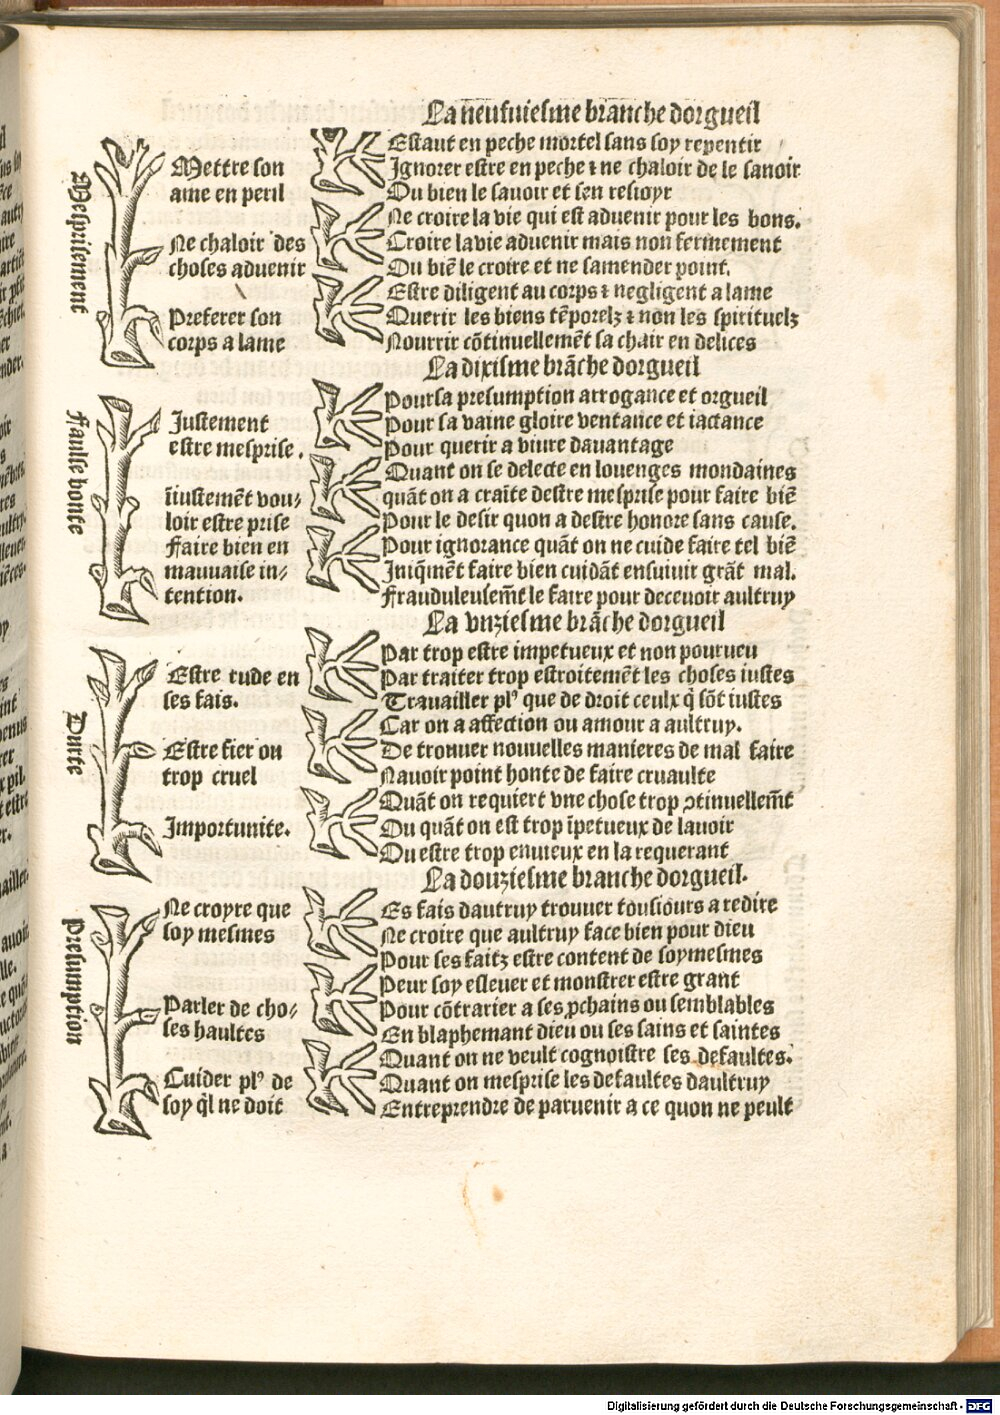 La neufuiesme branche dorgueil
Mesprisement
Mettre son
ame en peril
Estant en peche mortel sans soy repentir
Ignorer estre en peche ⁊ ne chaloir de le sauoir
Ou bien le sauoir et sen resioyr
Ne chaloir des
choses aduenir
Ne croire la vie qui est aduenir pour les bons.
Croire la vie aduenir mais non fermement
Ou biẽ le croire et ne samender point.
Preferer son
corps a lame
Estre diligent au corps ⁊ negligent a lame
Querir les biens tẽporelz ⁊ non les spirituelz
Nourrir cõtinuellemẽt sa chair en delices
La dixisme brãche dorgueil
Faulse honte
Justement
estre mesprise.
Pour sa presumption arrogance et orgueil
Pour sa vaine gloire ventance et iactance
Pour querir a viure dauantage
iniustemẽt vou-
loir estre prise
Quant on se delecte en louenges mondaines
quãt on a craĩte destre mesprise pour faire biẽ
Pour le desir quon a destre honore sans cause.
Faire bien en
mauuaise in-
tention.
Pour ignorance quãt on ne cuide faire tel biẽ
Iniq̃mẽt faire bien cuidãt ensuiuir grãt mal.
Frauduleusem̃t le faire pour deceuoir aultruy
La vnziesme brãche dorgueil
Durte
Estre rude en
ses fais.
Par trop estre impetueux et non pourueu
Par traiter trop estroitemẽt les choses iustes
Trauailler plꝰ que de droit ceulx q̃ sõt iustes
Estre fier ou
trop cruel
Car on a affection ou amour a aultruy.
De trouuer nouuelles manieres de mal faire
Nauoir point honte de faire cruaulte
Importunite.
Quãt on requiert vne chose trop ꝯtinuellem̃t
Ou quãt on est trop ĩpetueux de lauoir
Ou estre trop enuieux en la requerant
La douziesme branche dorgueil.
Presumption
Ne croyre que
soy mesmes
Es fais dautruy trouuer tousiours a redire
Ne croire que aultruy face bien pour dieu
Pour ses faitz estre content de soymesmes
Parler de cho-
ses haultes
Peur soy esleuer et monstrer estre grant
Pour cõtrarier a ses ꝓchains ou semblables
En blaphemant dieu ou ses sains et saintes
Cuider plꝰ de
soy q̃l ne doit
Quant on ne veult cognoistre ses defaultes.
Quant on mesprise les defaultes daultruy
Entreprendre de paruenir a ce quon ne peult
Digitalisierung gefördert durch die Deutsche Forschungsgemeinschaft - DFG